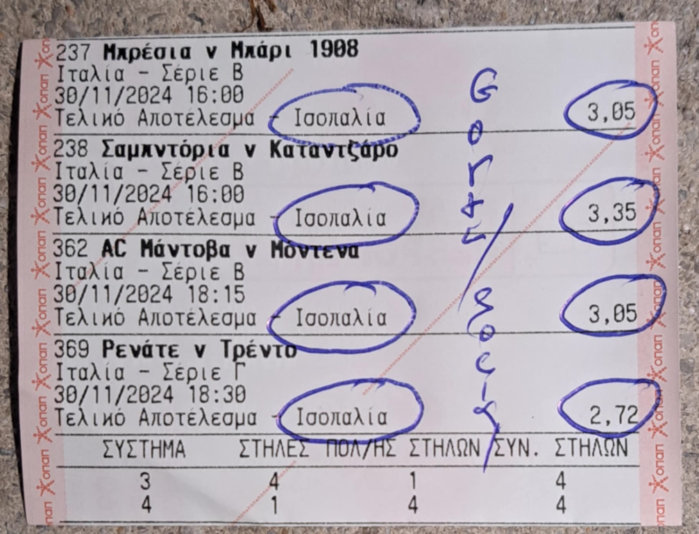 237 Μπρέσια v Μπάρι 1908
Ιταλία - Σέριε Β
30/11/2024 16:00
Τελικό Αποτέλεσμα - Ισοπαλία 3,05
238 Σαμπντόρια v Καταντζάρο
Ιταλία - Σέριε Β
30/11/2024 16:00
Τελικό Αποτέλεσμα - Ισοπαλία 3,35
362 AC Μάντοβα v Μόντενα
Ιταλία - Σέριε Β
30/11/2024 18:15
Τελικό Αποτέλεσμα - Ισοπαλία 3,05
369 Ρενάτε v Τρέντο
Ιταλία - Σέριε Γ
30/11/2024 18:30
Τελικό Αποτέλεσμα - Ισοπαλία 2,72
ΣΥΣΤΗΜΑ ΣΤΗΛΕΣ ΠΟΛ/ΗΣ ΣΤΗΛΩΝ ΣΥΝ. ΣΤΗΛΩΝ
3 4 1 4
4 1 4 4